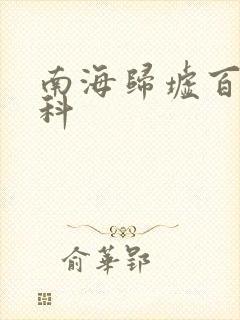 南海歸墟百
科
俞華郢